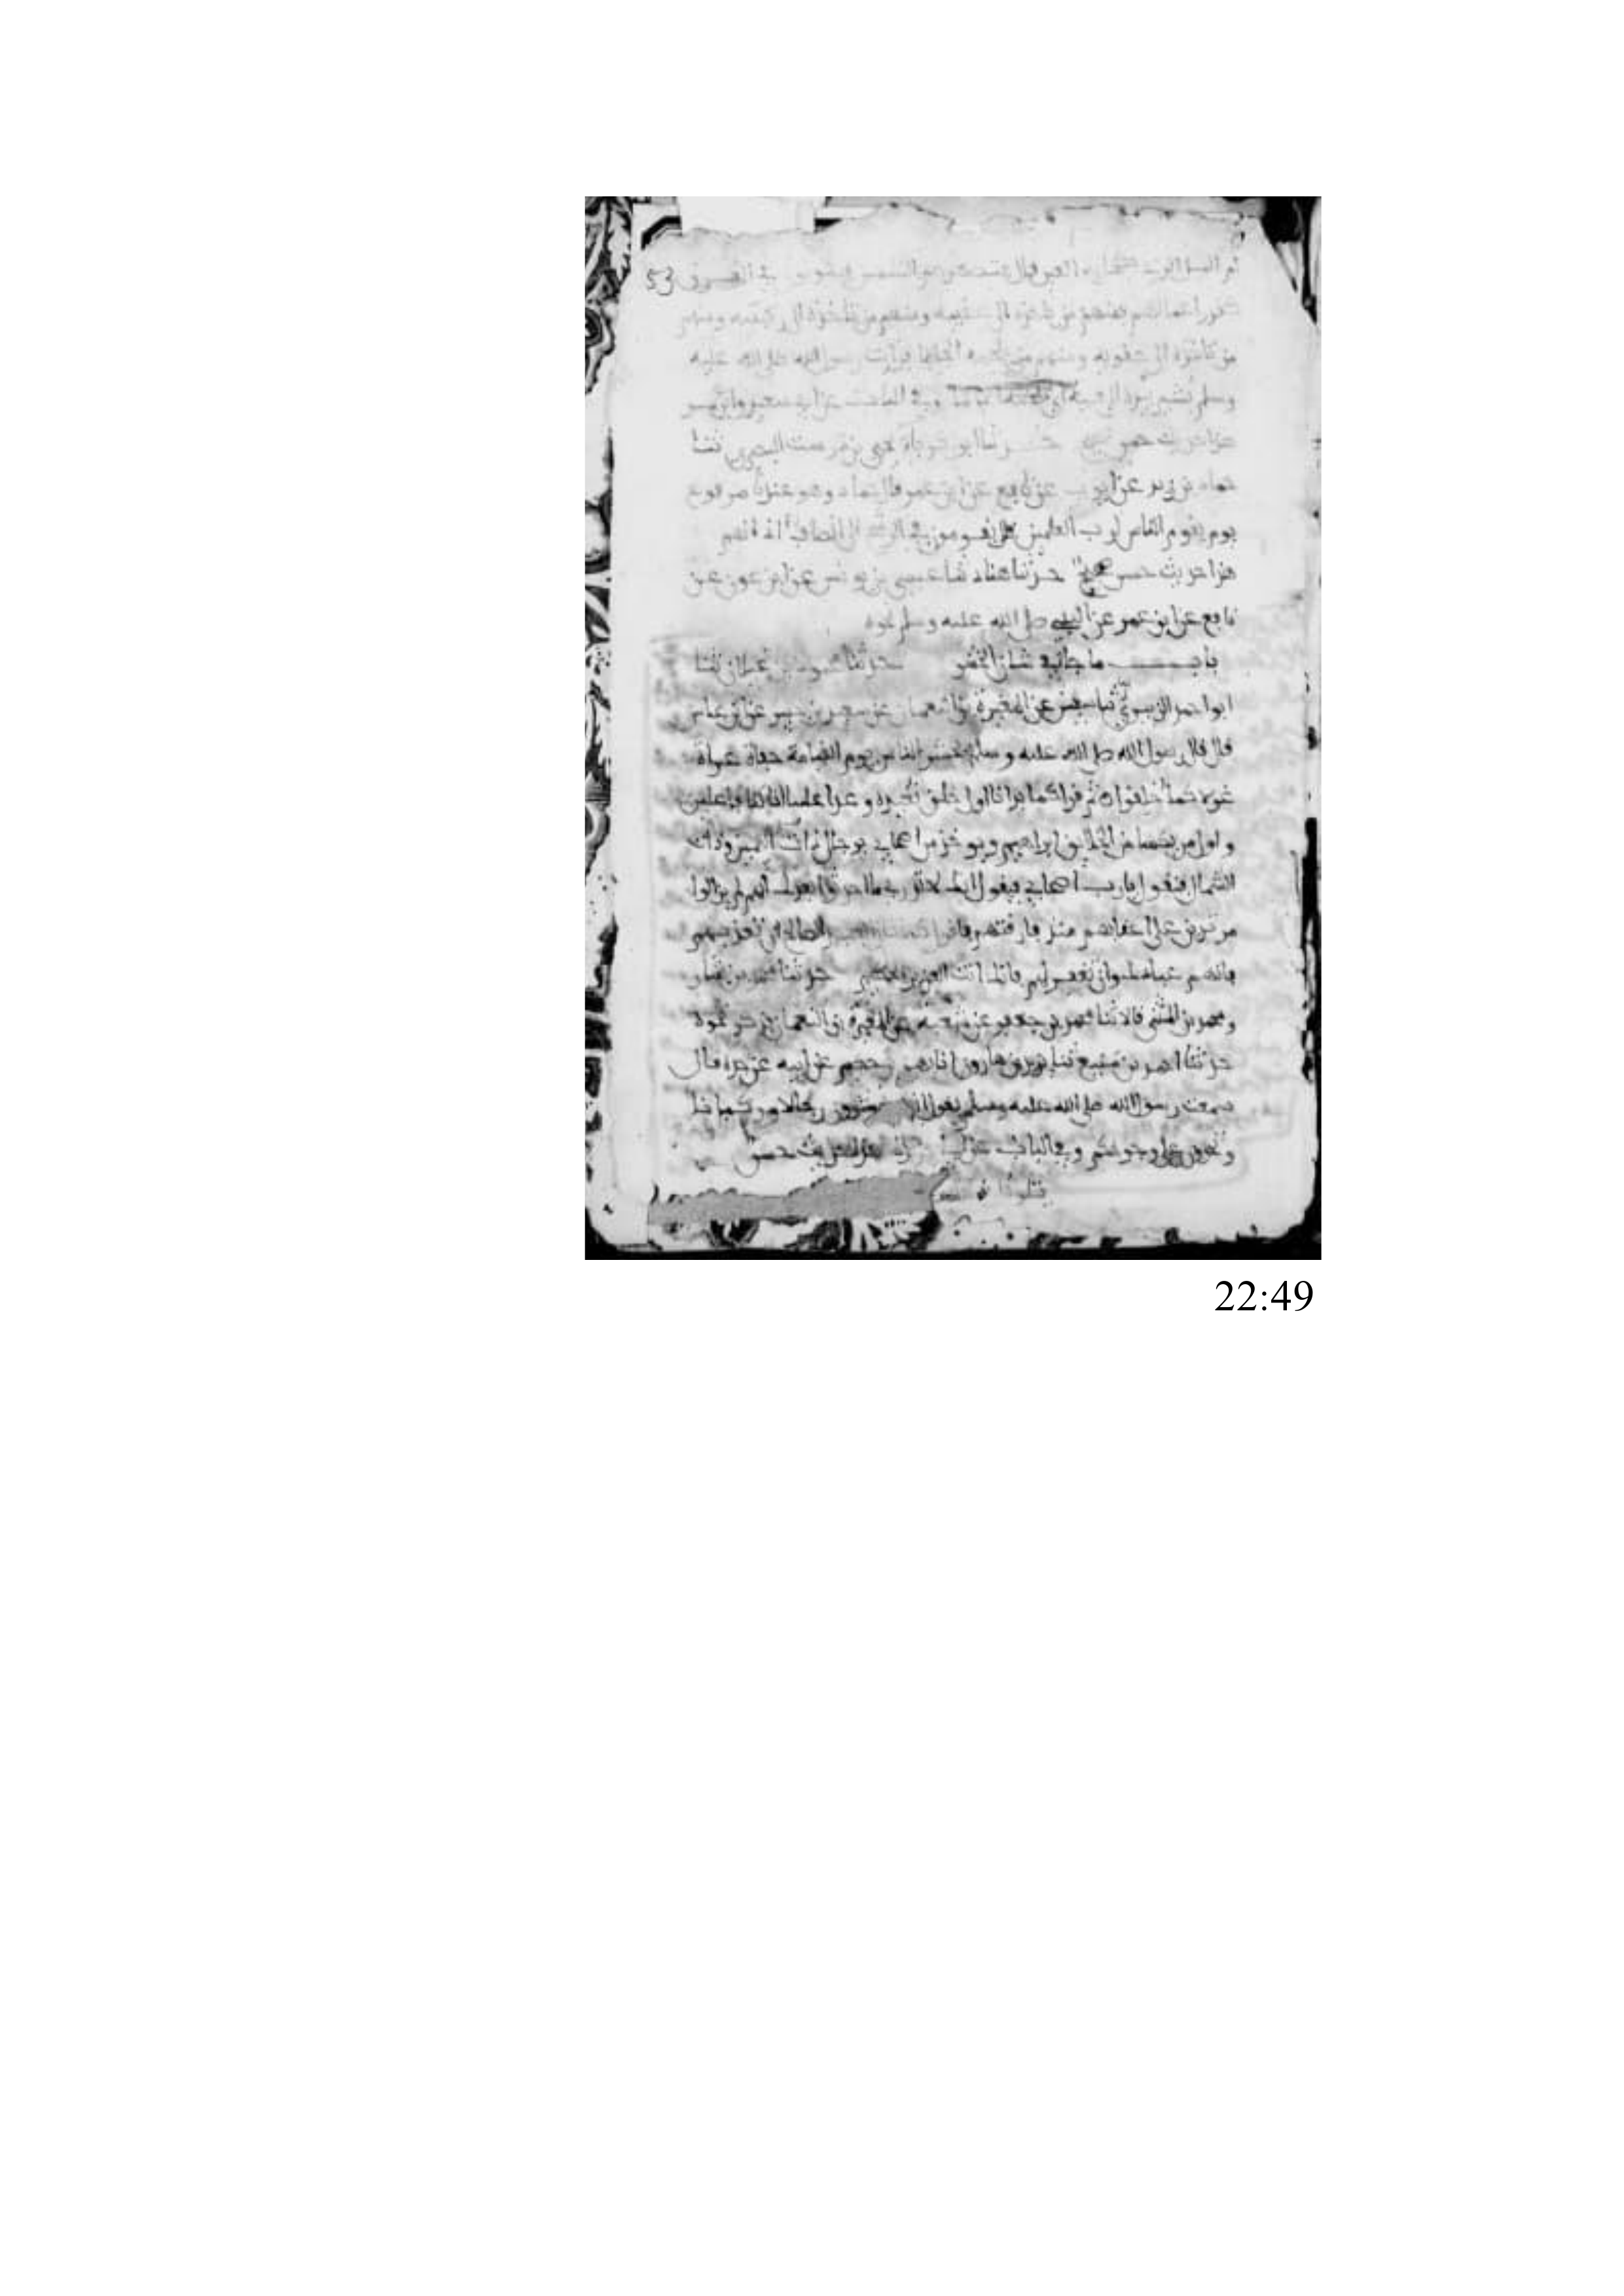 53
ام الميل الذي تكحل به العين قال فتصهرهم الشمس فيكونون في العرق
بقدر اعمالهم فمنهم من ياخذه الى عقبيه ومنهم من ياخذه الى ركبتيه ومنهم
من ياخذه الى حقويه ومنهم من يلجمه الجاما فرأيت رسول الله صلى الله عليه
وسلم يشير بيده الى فيه اي يلجمه الجاما وفي الباب عن ابي سعيد وابن عمر
هذا حديث حسن صحيح حدثنا ابو زكرياء يحيى بن درست البصري ثنا
حماد بن زيد عن ايوب عن نافع عن ابن عمر قال حماد وهو عندنا مرفوع
يوم يقوم الناس لرب العلمين قال يقومون في الرشح الى انصاف اذانهم
هذا حديث حسن صحيح حدثنا هناد ثنا عيسى بن يونس عن ابن عون عن
نافع عن ابن عمر عن النبي صلى الله عليه وسلم نحوه
باب ما جا في شان الحشر حدثنا محمود بن غيلان ثنا
ابو احمد الزبيري ثنا سفين عن المغيرة بن النعمان عن سعيد بن جبير عن ابن عباس
قال قال رسول الله صلى الله عليه وسلم يحشر الناس يوم القيامة حفاة عراة
غرلا كما خلقوا ثم قرا كما بدانا اول خلق نعيده وعدا علينا انا كنا فاعلين
واول من يكسا من الخلائق ابراهيم ويوخذ من اصحابي برجال ذات اليمين وذات
الشمال فنقول يا رب اصحابي فيقول انك لا تدري ما احدثوا بعدك انهم لم يزالوا
مرتدين على اعقابهم منذ فارقتهم فاقول كما قال العبد الصالح ان تعذبهم
فانهم عبادك وان تغفر لهم فانك انت العزيز الحكيم حدثنا محمد بن بشار
ومحمد بن المثنى قالا ثنا محمد بن جعفر عن شعبة عن المغيرة بن النعمان فذكر نحوه
حدثنا احمد بن منيع ثنا يزيد بن هارون انا بهز بن حكيم عن ابيه عن جده قال
سمعت رسول الله صلى الله عليه وسلم يقول انكم محشورون رجالا وركبانا
وتجرون على وجوهكم وفي الباب عن ابي هريرة هذا حديث حسن
22:49